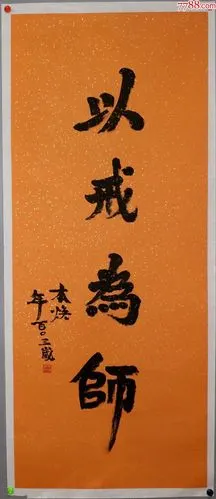 7788.com
以戒為師
本焕
年百〇三歲